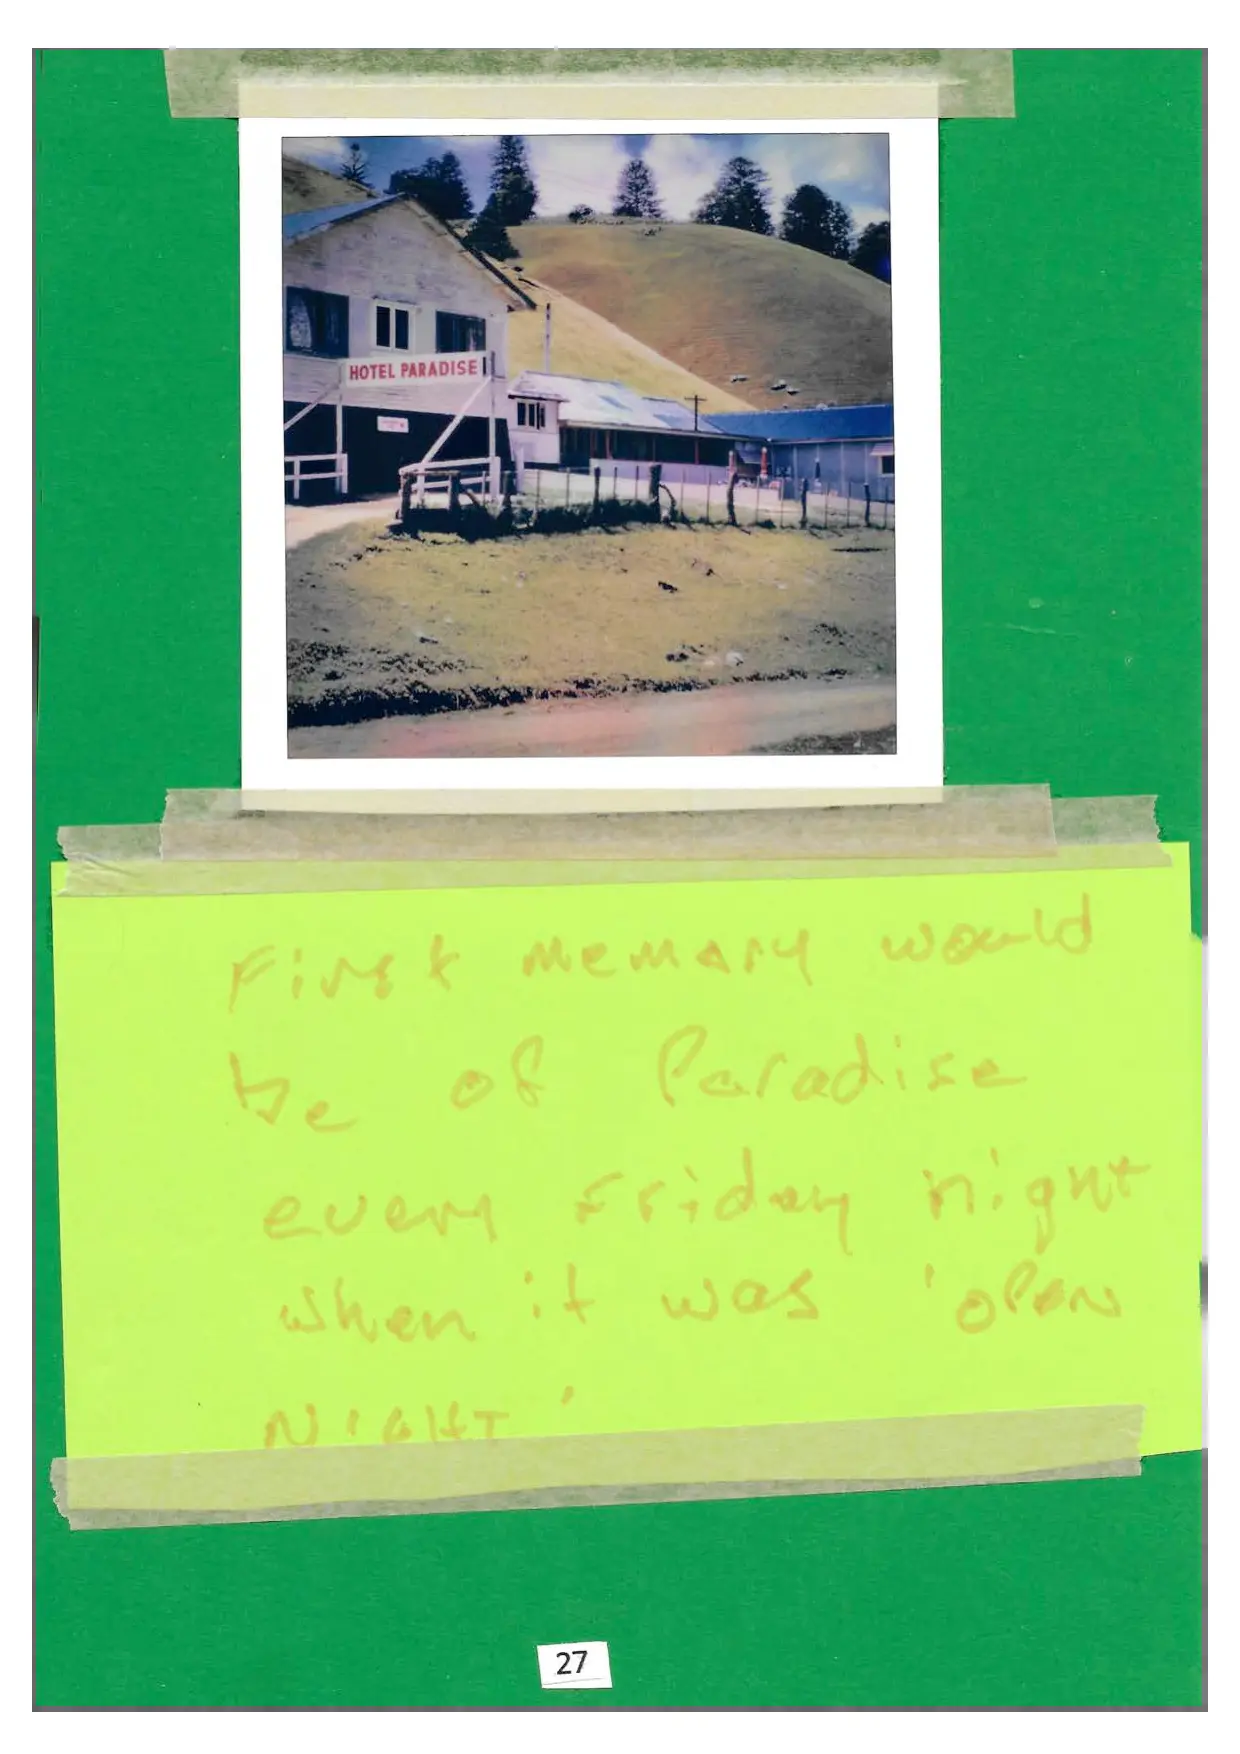 HOTEL PARADISE
First memory would
be of Paradise
every Friday night
when it was 'open
NIGHT'
27